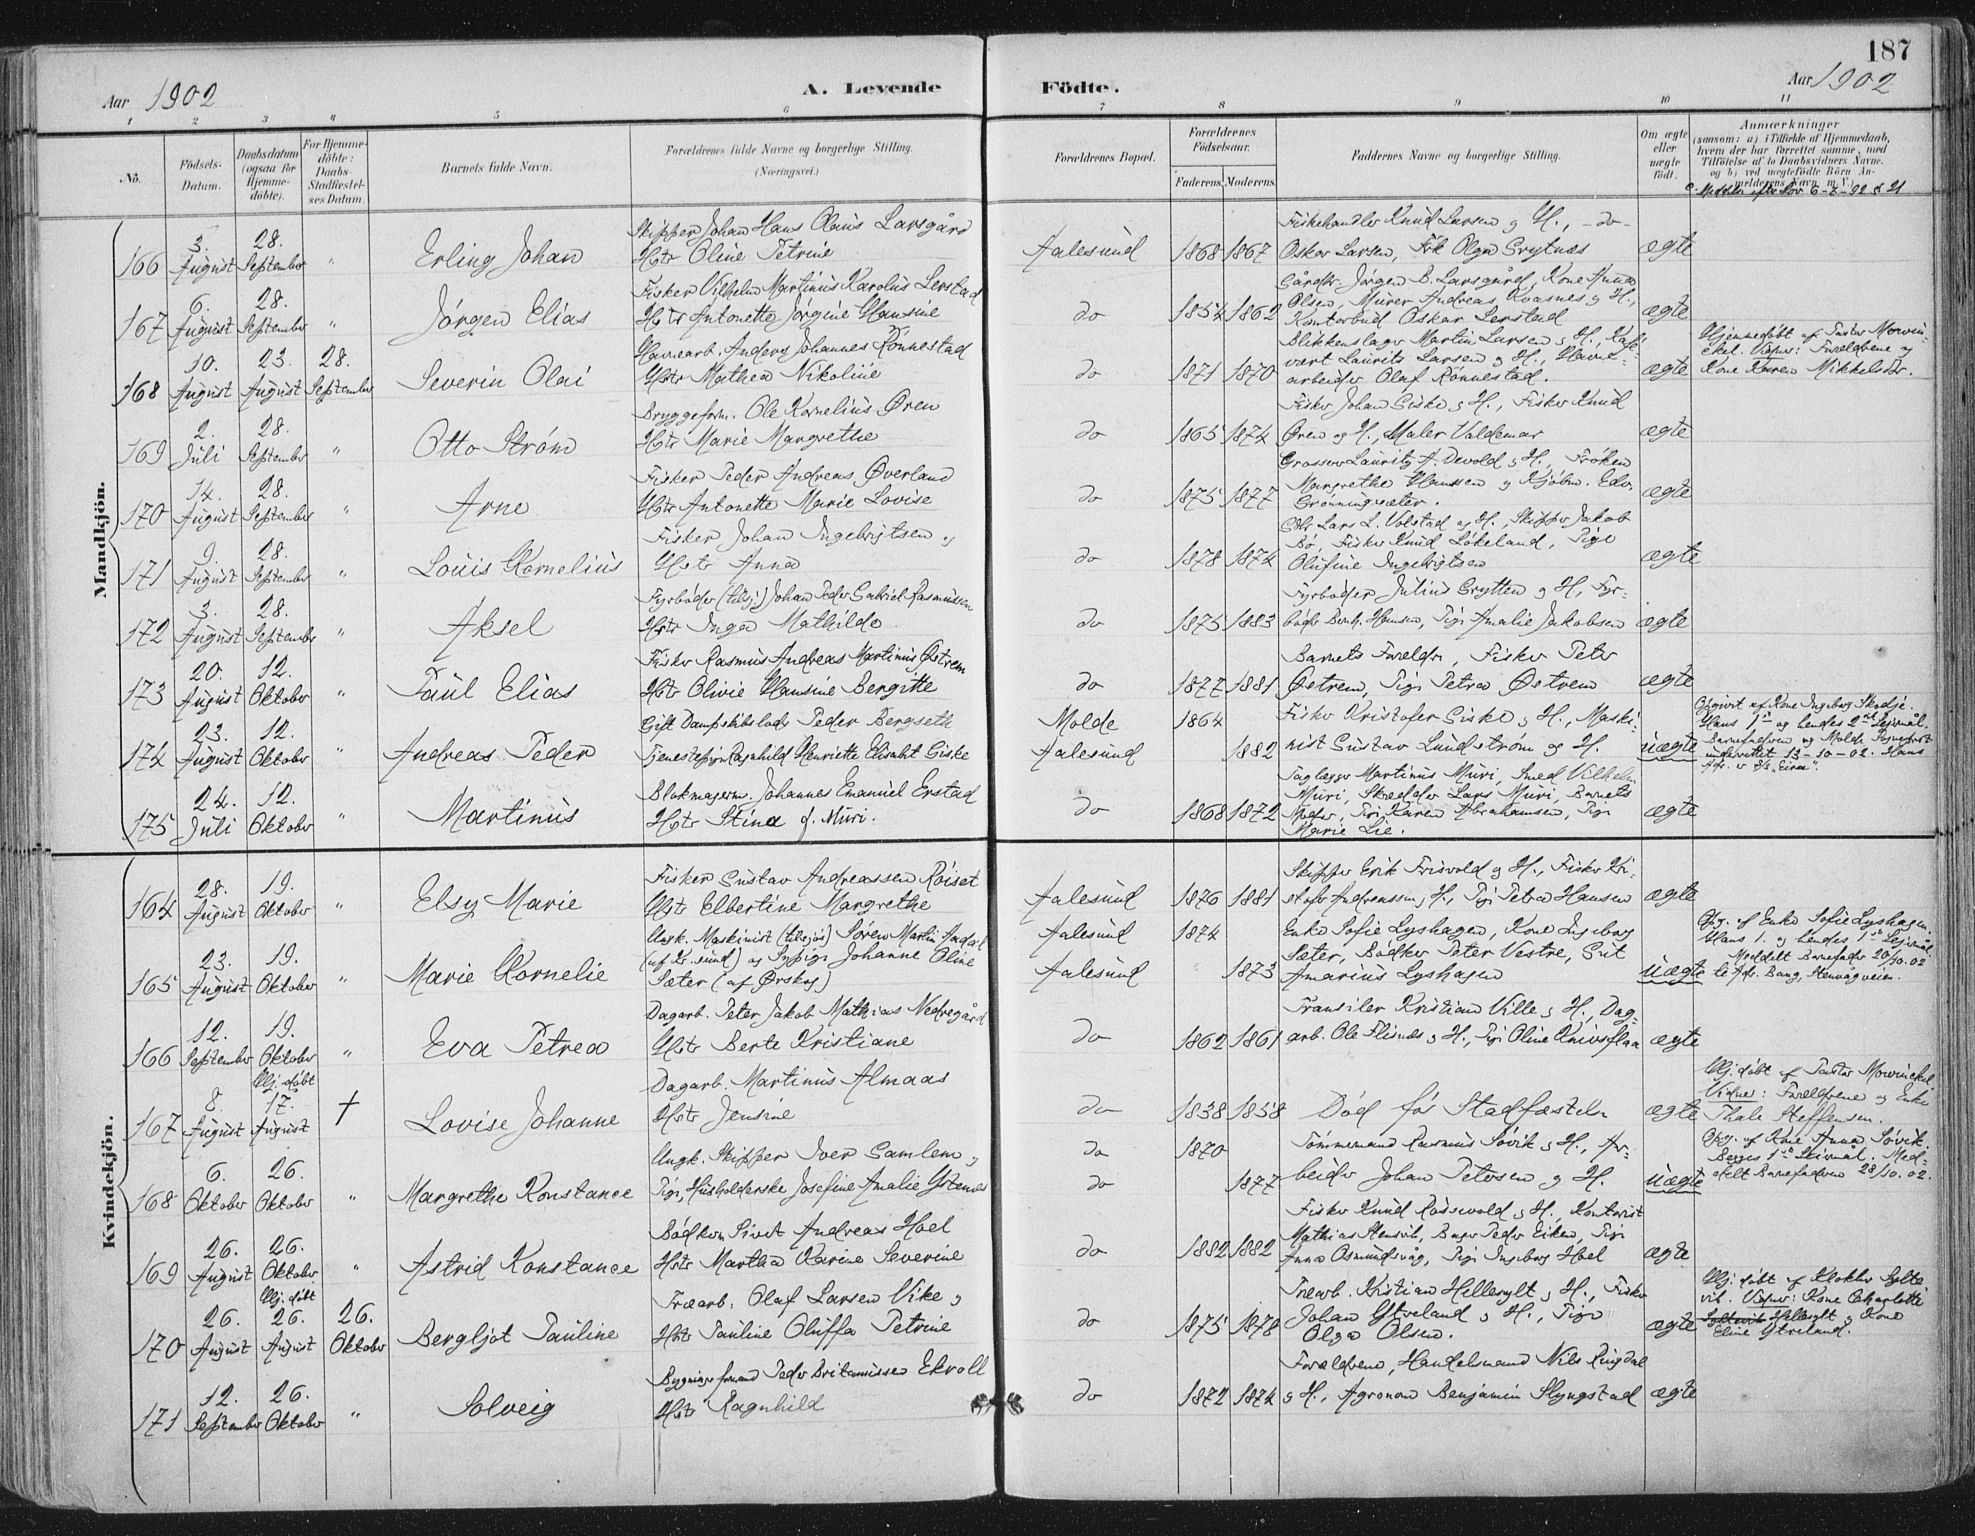 187
Aar 1902
A. Levende
Födte.
Aar 1902
1 2 3 4 5 6 7 8 9 10 11
No.
Födsels-Datum.
Daabsdatum (ogsaa for Hjemme-döbte).
For Hjemme-döbte: Daabs-Stadfæstel-ses Datum.
Barnets fulde Navn.
Forældrenes fulde Navne og borgerlige Stilling.
(Næringsvei.)
Forældrenes Bopæl.
Forældrenes Födselsaar.
Faderens. Moderens.
Faddernes Navne og borgerlige Stilling.
Om ægte eller uægte födt.
Anmærkninger
(saasom: a) i Tilfælde af Hjemmedaab,
hvem der har forrettet samme, med
Tilföielse af to Daabsvidners Navne.
og b) ved uægtefödte Börn An-
melderens Navn m. V.)
Mandkjön.
166 3. August 28. September " Erling Johan
Skipper Johan Hans Olaus Larsgård
Hstr Oline Petrine
Aalesund 1868 1867
Fiskehandler Knud Larsen og H., - do -
Oskar Larsen, Frk Olga Grytnes
ægte
167 6. August 28. September " Jørgen Elias
Fisker Vilhelm Martinus Karolus Lerstad
Hstr Antonette Jørgine Hansine
do 1854 1862
Gårdbr. Jørgen B. Larsgård, Kone Anna
Olsen, Murer Andreas Kvasnes og H.,
Kontorbud Oskar Lerstad
ægte
168 10. August 23. August 28. September Severin Olai
Havnearb. Anders Johannes Rønnestad
Hstr Mathea Nikoline
do 1871 1870
Blikkenslager Martin Larsen og H., Kafé-
vert Laurits Larsen og H., Havne-
arbeider Olaf Rønnestad.
ægte
Hjemmedøbt af Pastor Mowin-
ckel. Vidner: Forældrene og
Kone Karen Mikkelsdr.
169 2. Juli 28. September " Otto Strøm
Bryggeform. Ole Kornelius Øren
Hstr Marie Margrethe
do 1865 1874
Fisker Johan Giske og H., Fisker Knud
Øren og H., Maler Valdemar
ægte
170 14. August 28. September " Arne
Fisker Peder Andreas Øverland
Hstr Antonette Marie Lovise
do 1875 1877
Grosserer Lauritz A. Devold og H., Frøken
Margrethe Hanssen og Kjøbm. Edv.
Grønningsæter.
ægte
171 9. August 28. September " Louis Kornelius
Fisker Johan Ingebrigtsen og
Hstr Anna
do 1878 1874
Gbr Lars L. Volstad og H., Skipper Jakob
Bø, Fisker Knud Løkeland, Pige
Olufine Ingebrigtsen
ægte
172 3. August 28. September " Aksel
Fyrbøder (tilsjø) Johan Peder Gabriel Rasmussen
Hstr Inga Mathilde
do 1875 1883
Fyrbøder Julius Grytten og H., Fyr-
bøder Bernh. Hansen, Pige Amalie Jakobsen
ægte
173 20. August 12. Oktober " Paul Elias
Fisker Rasmus Andreas Martinus Østrem
Hstr Olivie Hansine Bergitte
do 1877 1881
Barnets Forældre, Fisker Peter
Østrem, Pige Petra Østrem
ægte
174 23. August 12. Oktober " Andreas Peder
Gift Dampskibslods Peder Bergseth
Tjenestepige Ragnhild Henriette Elisabet Giske
Molde 1864
Aalesund 1882
Fisker Kristofer Giske og H., Maski-
nist Gustav Lundstrøm og H.
uægte
Opgivet af Kone Ingeborg Skodje.
Hans 1ste og hendes 2net Leiermål.
Barnefadren og Molde Sognepræst
underrettet 13-10-02. Hans
Adr. er S/S "Eira".
175 24. Juli 12. Oktober " Martinus
Blokmagerm. Johannes Emanuel Erstad
Hstr Stina f. Muri.
do 1868 1872
Taglægger Martinus Muri, Smed Vilhelm
Muri, Skredder Lars Muri, Barnets
Moder, Pige Karen Abrahamsen, Pige
Marie Lie.
ægte
Kvindekjön.
164 28. August 19. Oktober " Elsy Marie
Fisker Gustav Andreassen Röiset
Hstr Elbertine Margrethe
Aalesund 1876 1881
Skipper Erik Frisvold og H., Fisker Kri-
stofer Andreassen og H., Pige Petra Hansen
ægte
165 23. August 19. Oktober " Marie Kornelie
Ungk. Maskinist (tilsjøs) Søren Martin Aadal
(af Kr.sund) og Pige Johanne Oline
Sæter (af Ørskog)
Aalesund 1874
Aalesund 1873
Enke Sofie Lyshagen, Kone Ingeborg
Sæter, Bødker Peter Vestre, Gut
Amarius Lyshagen
uægte
Opg. af Enke Sofie Lyshagen.
Hans 1. og hendes 1ste Leiermål.
Meddelt Barnefader 20/10.02
166 12. September 19. Oktober " Eva Petrea
Dagarb. Peter Jakob Mathias Nedregård
Hstr Berte Kristiane
do 1862 1861
Transiler Kristian Ville og H., Dag-
arb. Ole Flisnes og H., Pige Oline Knivsflaa
ægte
167 8. August Hj.døbt 17. August † Lovise Johanne
Dagarb. Martinus Almaas
Hstr Jensine
do 1838 1858
Død før Stadfæsteln
ægte
Hj.døbt af Pastor Mowinckel.
Vidner: Forældrene og Enke
Thale Steffensen.
168 6. Oktober 26. Oktober " Margrethe Konstance
Ungk. Skipper Iver Gamlem og
Pige, Husholderske Josefine Amalie Ystenes
do 1870
do 1877
Tømmermand Rasmus Søvik og H., Ar-
beider Johan Petersen og H.
uægte
Opg. af Kone Anna Søvik.
Begges 1ste Leiermål. Med-
delt Barnefadren 28/10.02.
169 26. August 26. Oktober " Astrid Konstance
Bødker Sivert Andreas Hoel
Hstr Martha Karine Severine
do 1882 1882
Fisker Knud Røsvold og H., Kontorist
Mathias Stensvik, Bager Peder Eiken, Pige
Anna Osmundsvåg, Pige Ingeborg Hoel
ægte
170 26. August Hj.døbt 26. August 26. Oktober Bergljot Pauline
Træarb. Olaf Larsen Vike og
Hstr Pauline Oluffa Petrine
do 1875 1878
Træarb. Kristian Hellesylt og H., Fisker
Johan Ystreland og H., Pige
Olga Olsen.
ægte
Hj.døbt af Klokker Sylte-
vik. Vidner: Kone Charlotte
Hellesylt og Kone
Eline Ytreland.
171 12. September 26. Oktober " Solveig
Bygningsformand Peder Britanussen Ekroll
Hstr Ragnhild
do 1872 1874
Forældrene, Handelsmand Nils Ringdal
og H., Agronom Benjamin Slyngstad
ægte